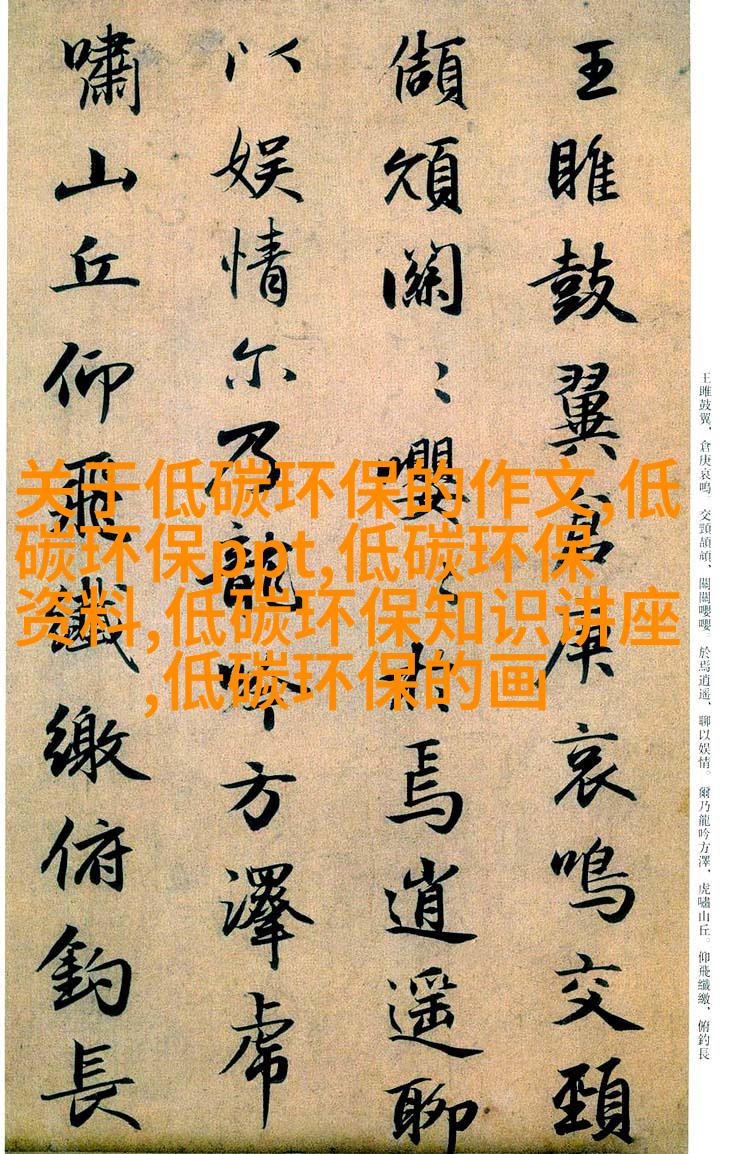 王雎鼓翼、倉庚哀鳴。交頸頡頏、關關嚶嚶。於焉逍遥、聊以娱情。爾乃龍吟方澤、虎嘯山丘。仰飛纖繳、俯釣長
王雎鼓翼倉庚哀鳴交頸
頡頏關〻嚶〻於焉逍遥聊
以娱情尔乃龍吟方澤虎
嘯山丘仰飛纖繳俯釣長
关于低碳环保的作文,低
碳环保ppt,低碳环保
资料,低碳环保知识讲座
,低碳环保的画